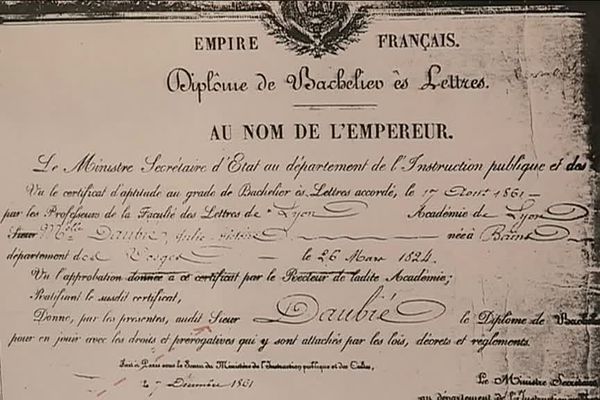 EMPIRE FRANÇAIS.
Diplôme de Bachelier ès Lettres.
AU NOM DE L'EMPEREUR.
Le Ministre Secrétaire d'État au département de l'Instruction publique et des
Vu le certificat d'aptitude au grade de Bachelier ès-Lettres accordé, le 17 Août 1861
par les Professeurs de la Faculté des Lettres de Lyon Académie de Lyon
Sieur Melle Daubié, Julie Victoire né à Bains
département des Vosges le 26 Mars 1824.
Vu l'approbation donnée à ce certificat par le Recteur de ladite Académie;
Ratifiant le susdit certificat,
Donne, par les présentes, audit Sieur Daubié le Diplôme de Bachelier
pour en jouir avec les droits et prérogatives qui y sont attachés par les lois, décrets et règlements.
Fait à Paris sous le Sceau du Ministère de l'Instruction publique et des Cultes,
le 7 Décembre 1861
Le Ministre Secrétaire
au département de l'Instruction